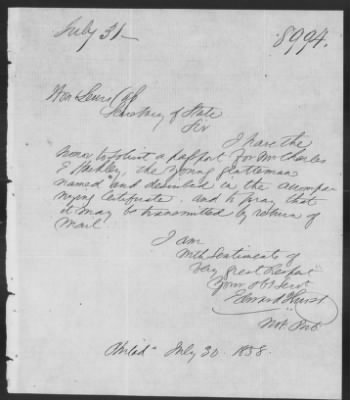 July 31
8994.
Hon Lewis Cass
Secretary of State
Sir
I have the
honor to solicit a passport for Mr Charles
E the young gentleman
named and described in the accompa-
nying Certificate and to pray that
it may be transmitted by return of
mail
I am
With Sentiments of
Very great Respect
Your Obt Servt
Edward Hurst
Not. Pub
Philada July 30. 1858.